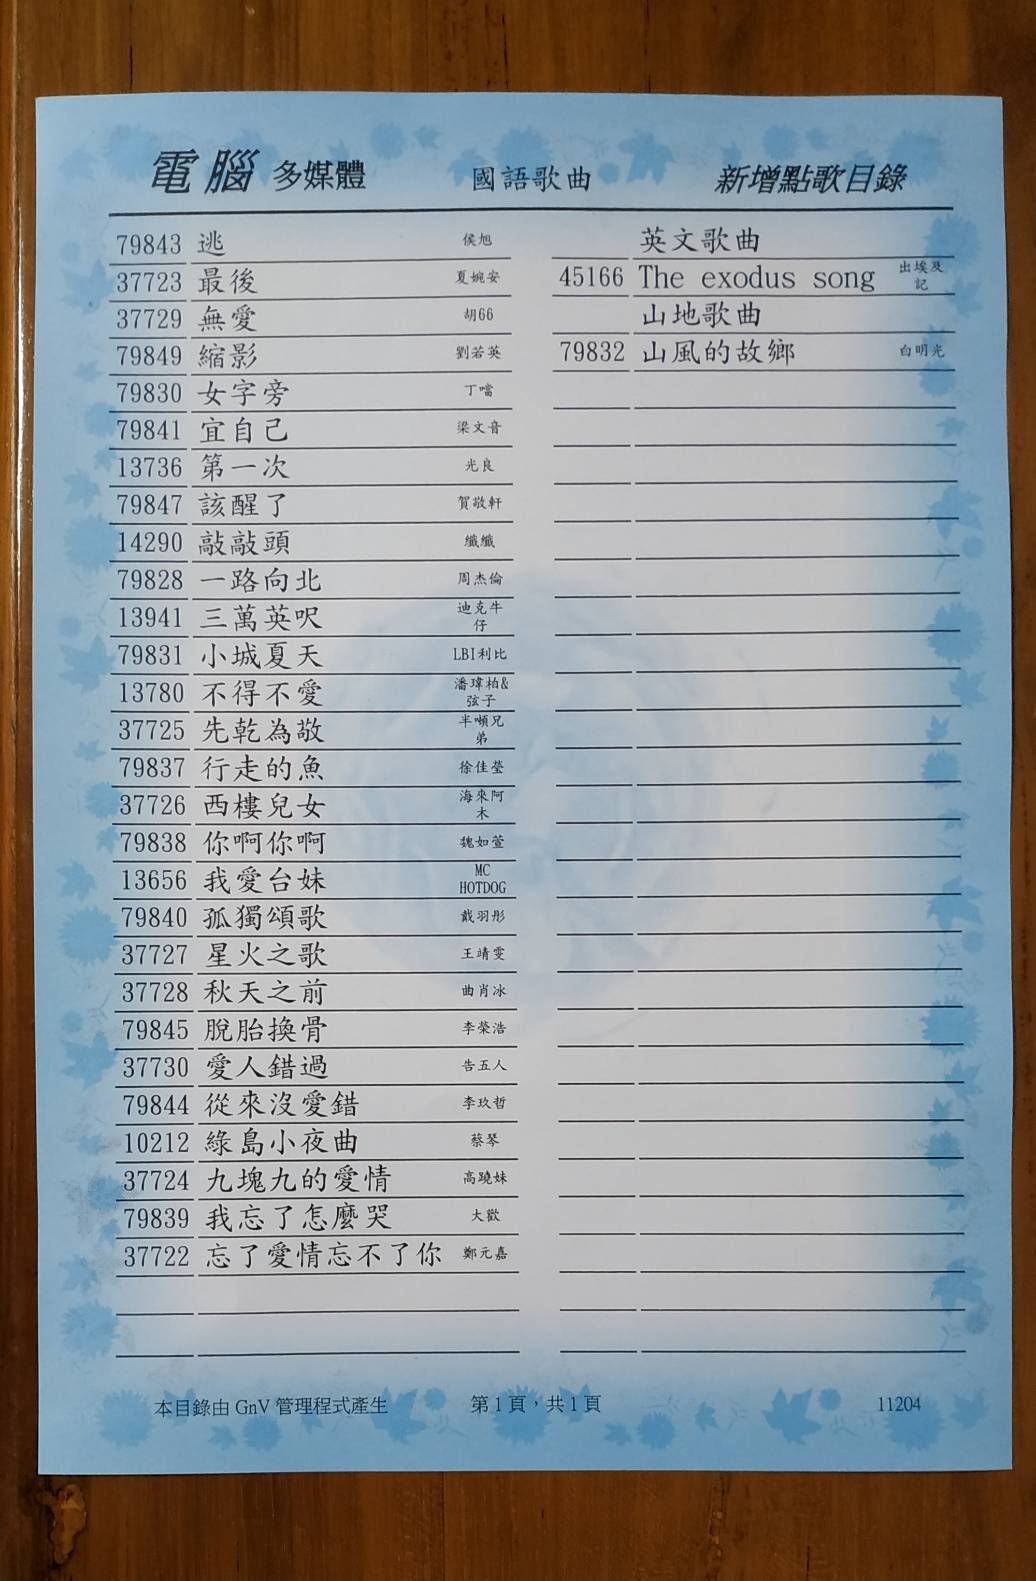 電腦多媒體 國語歌曲 新增點歌目錄
79843 逃 侯旭
37723 最後 夏婉安
37729 無愛 胡66
79849 縮影 劉若英
79830 女字旁 丁噹
79841 宜自己 梁文音
13736 第一次 光良
79847 該醒了 賀敬軒
14290 敲敲頭 纖纖
79828 一路向北 周杰倫
13941 三萬英呎 迪克牛仔
79831 小城夏天 LBI利比
13780 不得不愛 潘瑋柏&弦子
37725 先乾為敬 半噸兄弟
79837 行走的魚 徐佳瑩
37726 西樓兒女 海來阿木
79838 你啊你啊 魏如萱
13656 我愛台妹 MC HOTDOG
79840 孤獨頌歌 戴羽彤
37727 星火之歌 王靖雯
37728 秋天之前 曲肖冰
79845 脫胎換骨 李榮浩
37730 愛人錯過 告五人
79844 從來沒愛錯 李玖哲
10212 綠島小夜曲 蔡琴
37724 九塊九的愛情 高蹺妹
79839 我忘了怎麼哭 大歡
37722 忘了愛情忘不了你 鄭元嘉
英文歌曲
45166 The exodus song 出埃及記
山地歌曲
79832 山風的故鄉 白明光
本目錄由 GnV 管理程式產生 第1頁，共1頁 11204